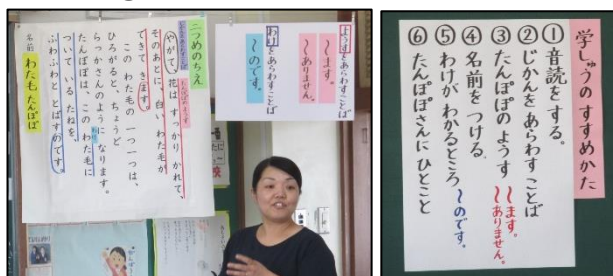 二つめのちえ
じかんをあらわすことば
やがて、花は すっかり かれて、
たんぽぽのようす
そのあとに、白い わた毛が
できて きます。
この わた毛の 一つ一つは、
ひろがると、ちょうど
らっかさんのように なります。
たんぽぽは、この わた毛に
わけ
ついて いる たねを、
ふわふわと とばすのです。
名前 わた毛 たんぽぽ
ようすをあらわすことば
〜ます。
〜ありません。
わけをあらわすことば
〜のです。
学しゅうの すすめかた
①音読を する。
②じかんを あらわす ことば
③たんぽぽの ようす 〜ます。
〜ありません。
④名前を つける。
⑤わけが わかるところ 〜のです。
⑥たんぽぽさんに ひとこと